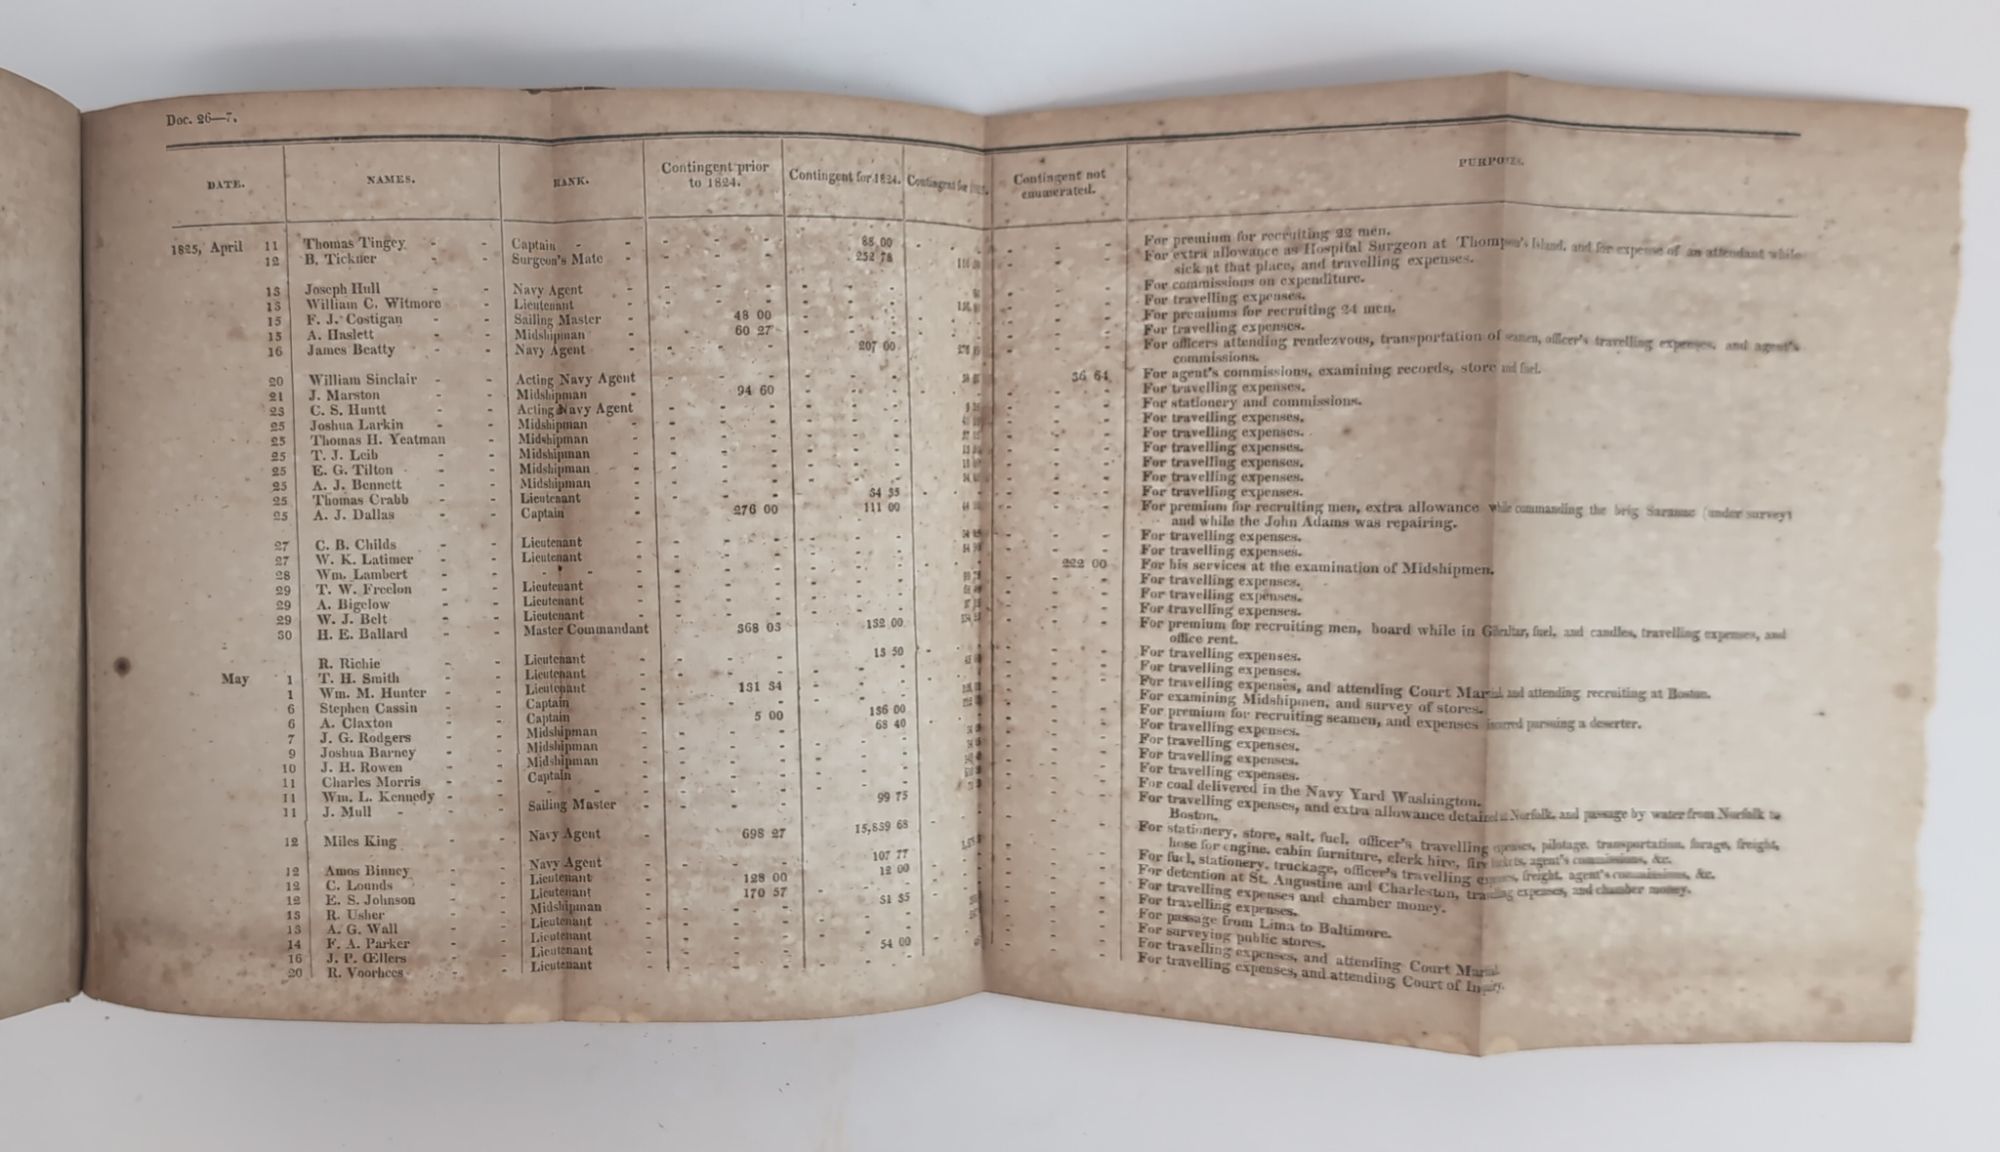 Doc. 26—7.
DATE. NAMES. RANK. Contingent prior to 1824. Contingent for 1824. Contingent for Contingent not enumerated. PURPOSES.
1825, April 11 Thomas Tingey - - Captain - - - - 88 00 - - - - For premium for recruiting 22 men.
12 B. Tickner - - Surgeon's Mate - - - 252 78 - - For extra allowance as Hospital Surgeon at Thompson's Island, and for expense of an attendant while
sick at that place, and travelling expenses.
13 Joseph Hull - - Navy Agent - - - - - - - For commissions on expenditure.
13 William C. Witmore - Lieutenant - - - - - - - For travelling expenses.
15 F. J. Costigan - - Sailing Master - 48 00 - - - - - For premiums for recruiting 24 men.
15 A. Haslett - - Midshipman - 60 27 - - - - - For travelling expenses.
16 James Beatty - - Navy Agent - - - 207 00 - - For officers attending rendezvous, transportation of seamen, officer's travelling expenses, and agent's
commissions.
20 William Sinclair - - Acting Navy Agent - - - - 36 64 For agent's commissions, examining records, store and fuel.
21 J. Marston - - Midshipman - 94 60 - - - - For travelling expenses.
23 C. S. Huntt - - Acting Navy Agent - - - - - - For stationery and commissions.
25 Joshua Larkin - - Midshipman - - - - - - - For travelling expenses.
25 Thomas H. Yeatman - Midshipman - - - - - - - For travelling expenses.
25 T. J. Leib - - Midshipman - - - - - - - For travelling expenses.
25 E. G. Tilton - - Midshipman - - - - - - - For travelling expenses.
25 A. J. Bennett - - Midshipman - - - - - - - For travelling expenses.
25 Thomas Crabb - - Lieutenant - - - 34 35 - - - - For travelling expenses.
25 A. J. Dallas - - Captain - 276 00 111 00 - - For premium for recruiting men, extra allowance while commanding the brig (under survey)
and while the John Adams was repairing.
27 C. B. Childs - - Lieutenant - - - - - - - For travelling expenses.
27 W. K. Latimer - - Lieutenant - - - - - - - For travelling expenses.
28 Wm. Lambert - - - - - - - - - 222 00 For his services at the examination of Midshipmen.
29 T. W. Freelon - - Lieutenant - - - - - - - For travelling expenses.
29 A. Bigelow - - Lieutenant - - - - - - - For travelling expenses.
29 W. J. Belt - - Lieutenant - - - - - - - For travelling expenses.
30 H. E. Ballard - - Master Commandant 368 03 132 00 - - For premium for recruiting men, board while in Gibraltar, fuel, and candles, travelling expenses, and
office rent.
R. Richie - - Lieutenant - - - 13 50 - - - - For travelling expenses.
May 1 T. H. Smith - - Lieutenant - - - - - - - For travelling expenses.
1 Wm. M. Hunter - - Lieutenant - 131 34 - - - - For travelling expenses, and attending Court Martial and attending recruiting at Boston.
6 Stephen Cassin - - Captain - - - 136 00 - - For examining Midshipmen, and survey of stores.
6 A. Claxton - - Captain - 5 00 68 40 - - - - For premium for recruiting seamen, and expenses incurred pursuing a deserter.
7 J. G. Rodgers - - Midshipman - - - - - - - For travelling expenses.
9 Joshua Barney - - Midshipman - - - - - - - For travelling expenses.
10 J. H. Rowen - - Midshipman - - - - - - - For travelling expenses.
11 Charles Morris - - Captain - - - - - - - For travelling expenses.
11 Wm. L. Kennedy - - - - - - 99 75 - - - - For coal delivered in the Navy Yard Washington.
11 J. Mull - - Sailing Master - - - - - - - For travelling expenses, and extra allowance detained at Norfolk, and passage by water from Norfolk to
Boston.
12 Miles King - - Navy Agent - 698 27 15,839 68 - - For stationery, store, salt, fuel, officer's travelling expenses, pilotage, transportation, forage, freight,
hose for engine, cabin furniture, clerk hire, fire agent's commissions, &c.
12 Amos Binney - - Navy Agent - - - 107 77 - - For fuel, stationery, truckage, officer's travelling expenses, freight, agent's commissions, &c.
12 C. Lounds - - Lieutenant - 128 00 12 00 - - For detention at St. Augustine and Charleston, travelling expenses, and chamber money.
12 E. S. Johnson - - Lieutenant - 170 57 - - - - For travelling expenses and chamber money.
13 R. Usher - - Midshipman - - - 31 35 - - - For travelling expenses.
13 A. G. Wall - - Lieutenant - - - - - - - For passage from Lima to Baltimore.
14 F. A. Parker - - Lieutenant - - - - - - - For surveying public stores.
16 J. P. Œllers - - Lieutenant - - - 54 00 - - - For travelling expenses, and attending Court Martial.
20 R. Voorhees - - Lieutenant - - - - - - - For travelling expenses, and attending Court of Inquiry.